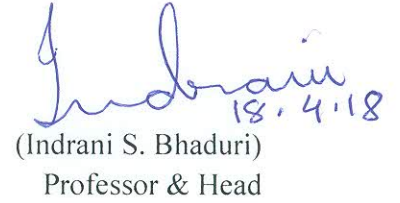 Indrani
18.4.18
(Indrani S. Bhaduri)
Professor & Head